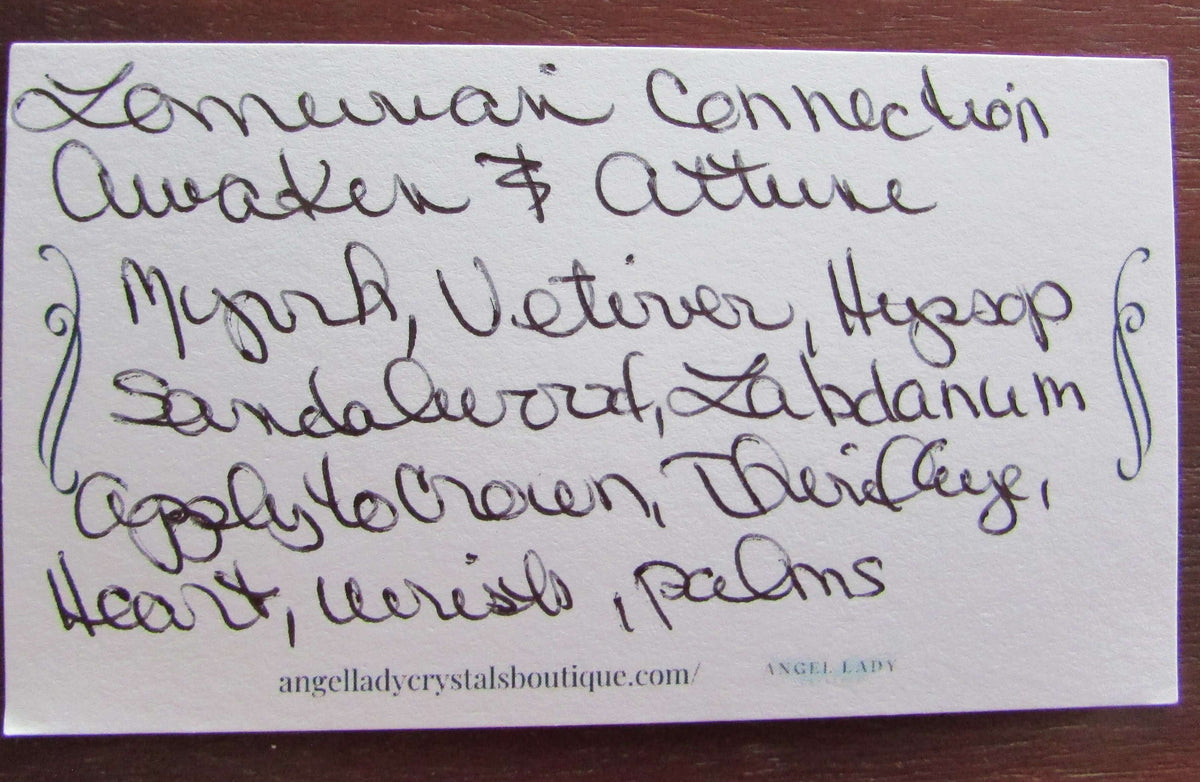 Lomeurian Connection
Awaken & Attune
Myrrh, Vetiver, Hyssop
Sandalwood, Labdanum
Apply to Crown, Third Eye,
Heart, wrists, palms
angelladycrystalsboutique.com/ ANGEL LADY